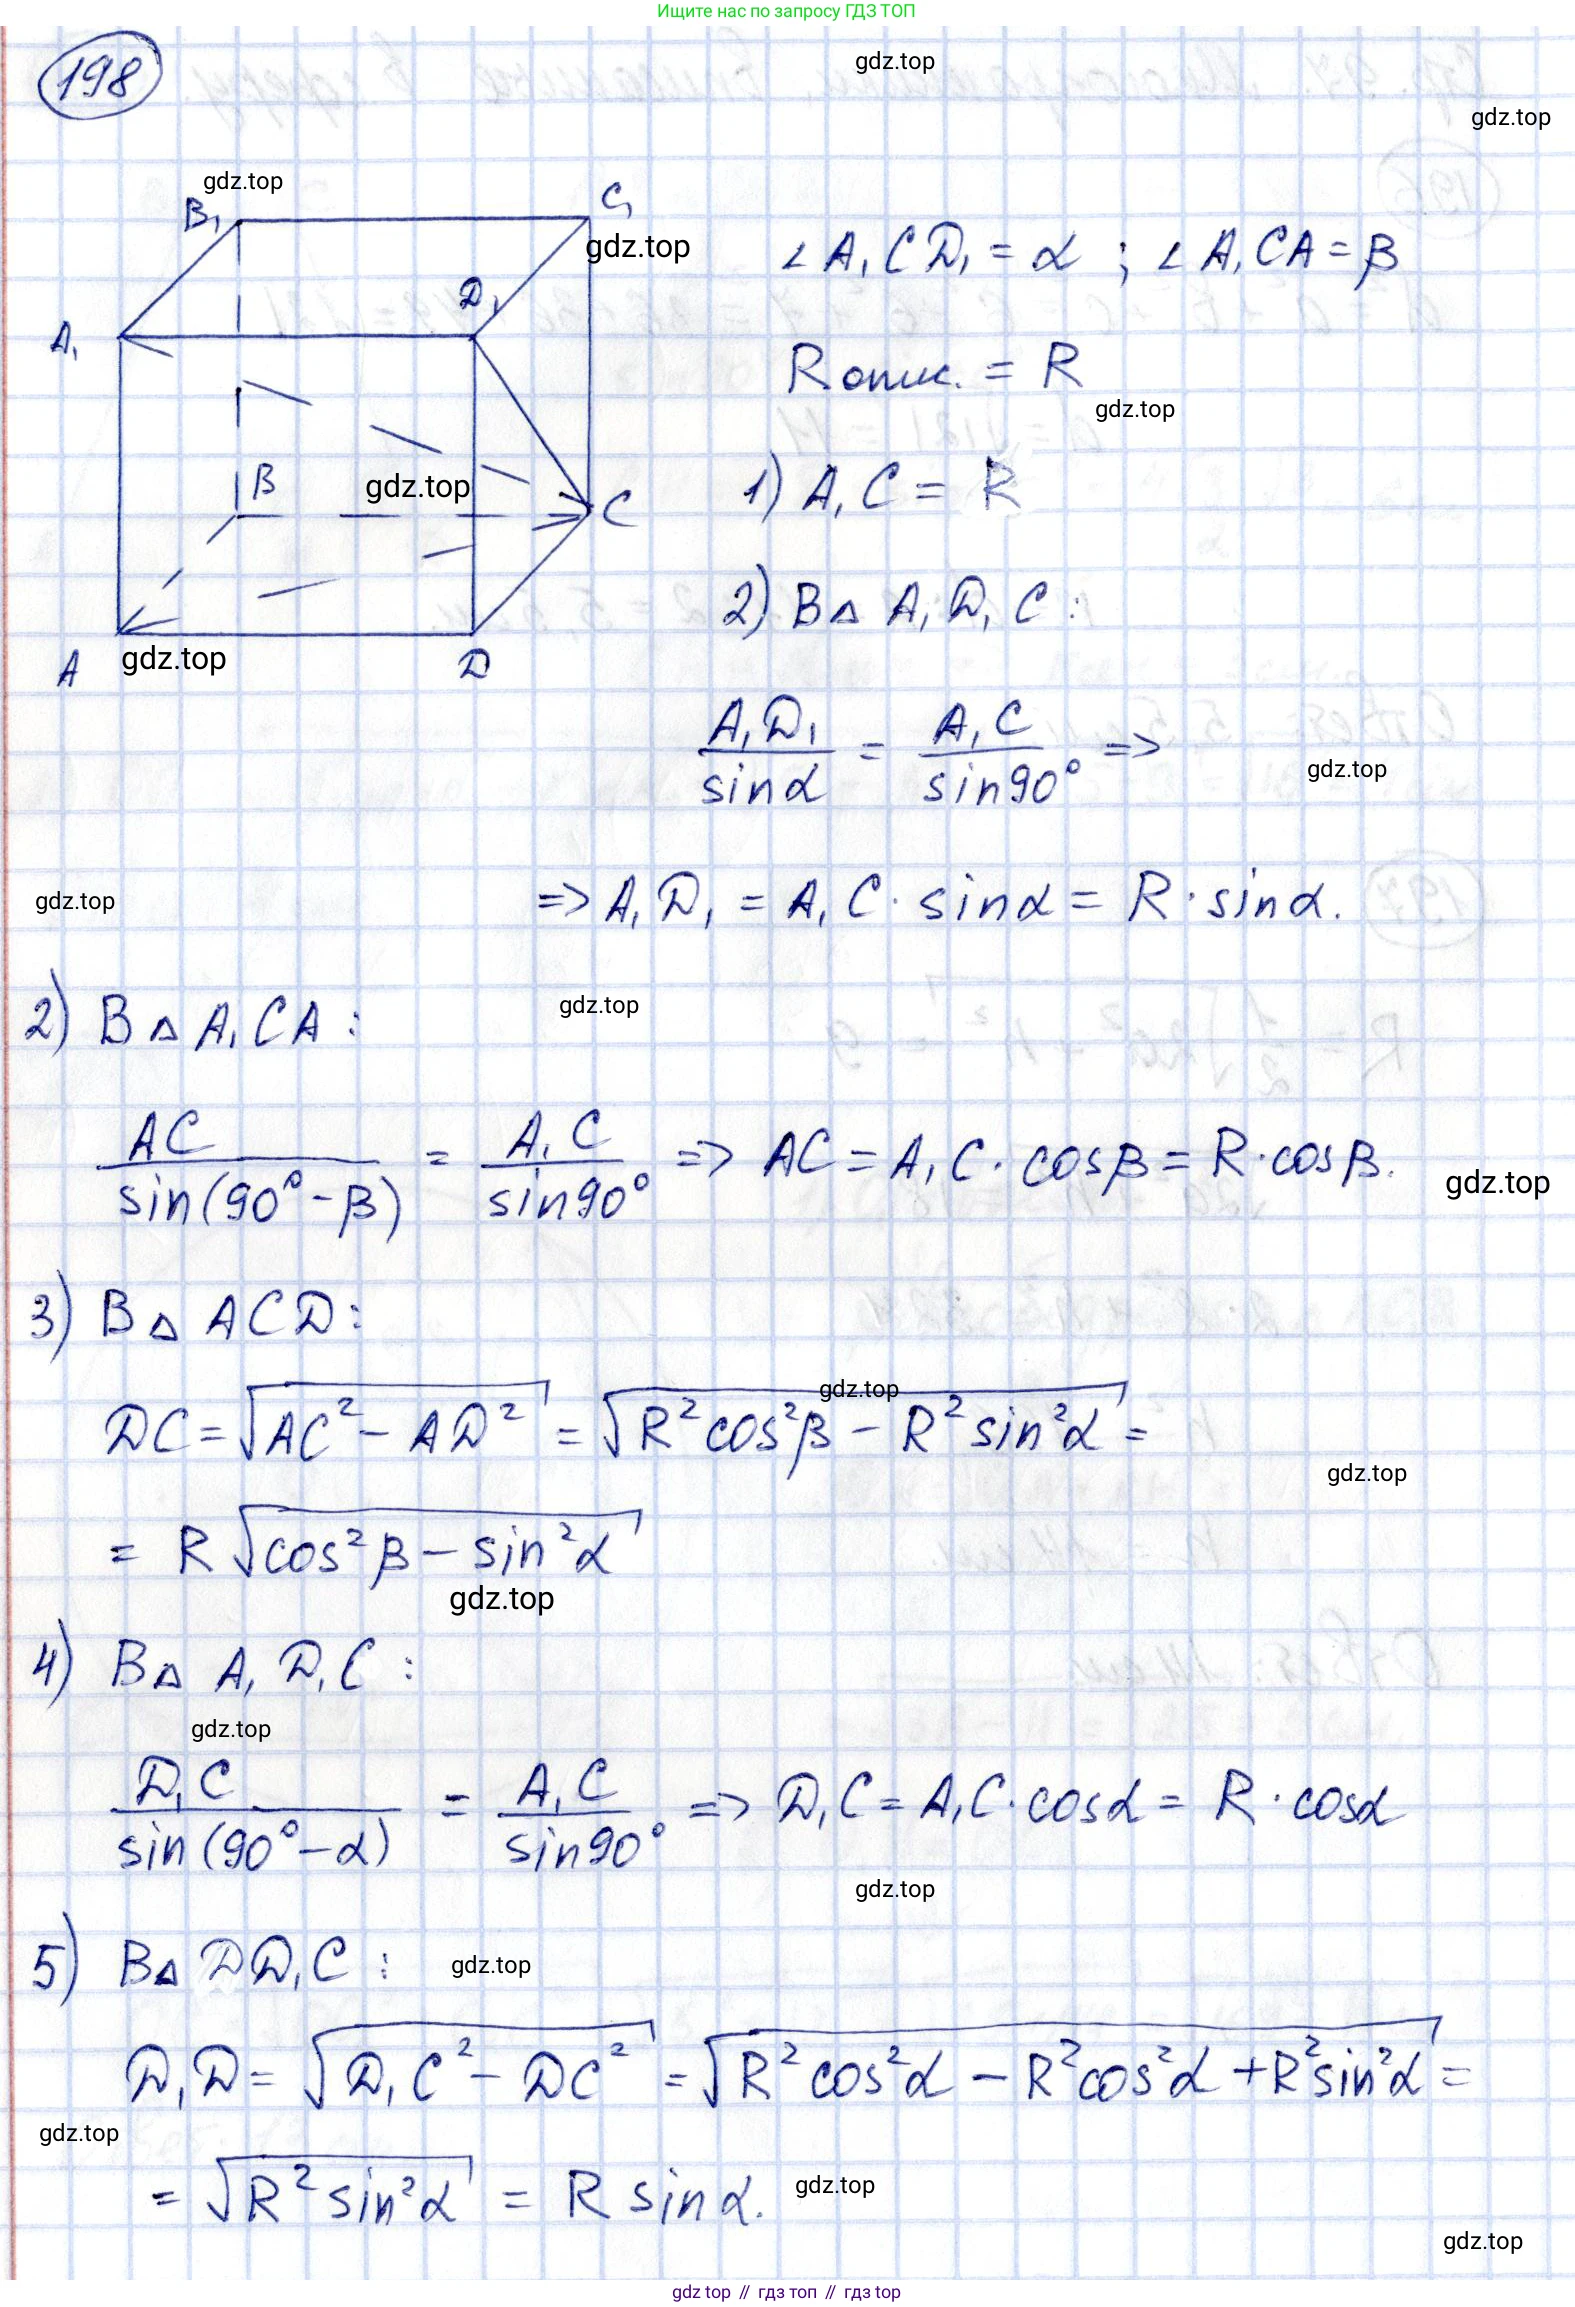 Ищите нас по запросу ГДЗ ТОП
198
gdz.top
gdz.top
gdz.top
B₁
C₁
gdz.top
∠A₁CD₁ = α ; ∠A₁CA = β
D₁
A₁
Rопис. = R
gdz.top
B
gdz.top
C
1) A₁C = R
2) В△ A₁D₁C :
A
gdz.top
D
A₁D₁/sinα = A₁C/sin90° =>
gdz.top
=> A₁D₁ = A₁C · sinα = R · sinα.
gdz.top
2) В△ A₁CA :
gdz.top
AC/sin(90°-β) = A₁C/sin90° => AC = A₁C · cosβ = R · cosβ.
gdz.top
3) В△ ACD :
DC = √(AC² - AD²) = √(R²cos²β - R²sin²α) =
gdz.top
gdz.top
= R√(cos²β - sin²α)
gdz.top
4) В△ A₁D₁C :
gdz.top
D₁C/sin(90°-α) = A₁C/sin90° => D₁C = A₁C · cosα = R · cosα
gdz.top
5) В△ DD₁C :
gdz.top
D₁D = √(D₁C² - DC²) = √(R²cos²α - R²cos²α + R²sin²α) =
gdz.top
= √(R²sin²α) = R sinα.
gdz.top
gdz.top
gdz top // гдз топ // гдз top